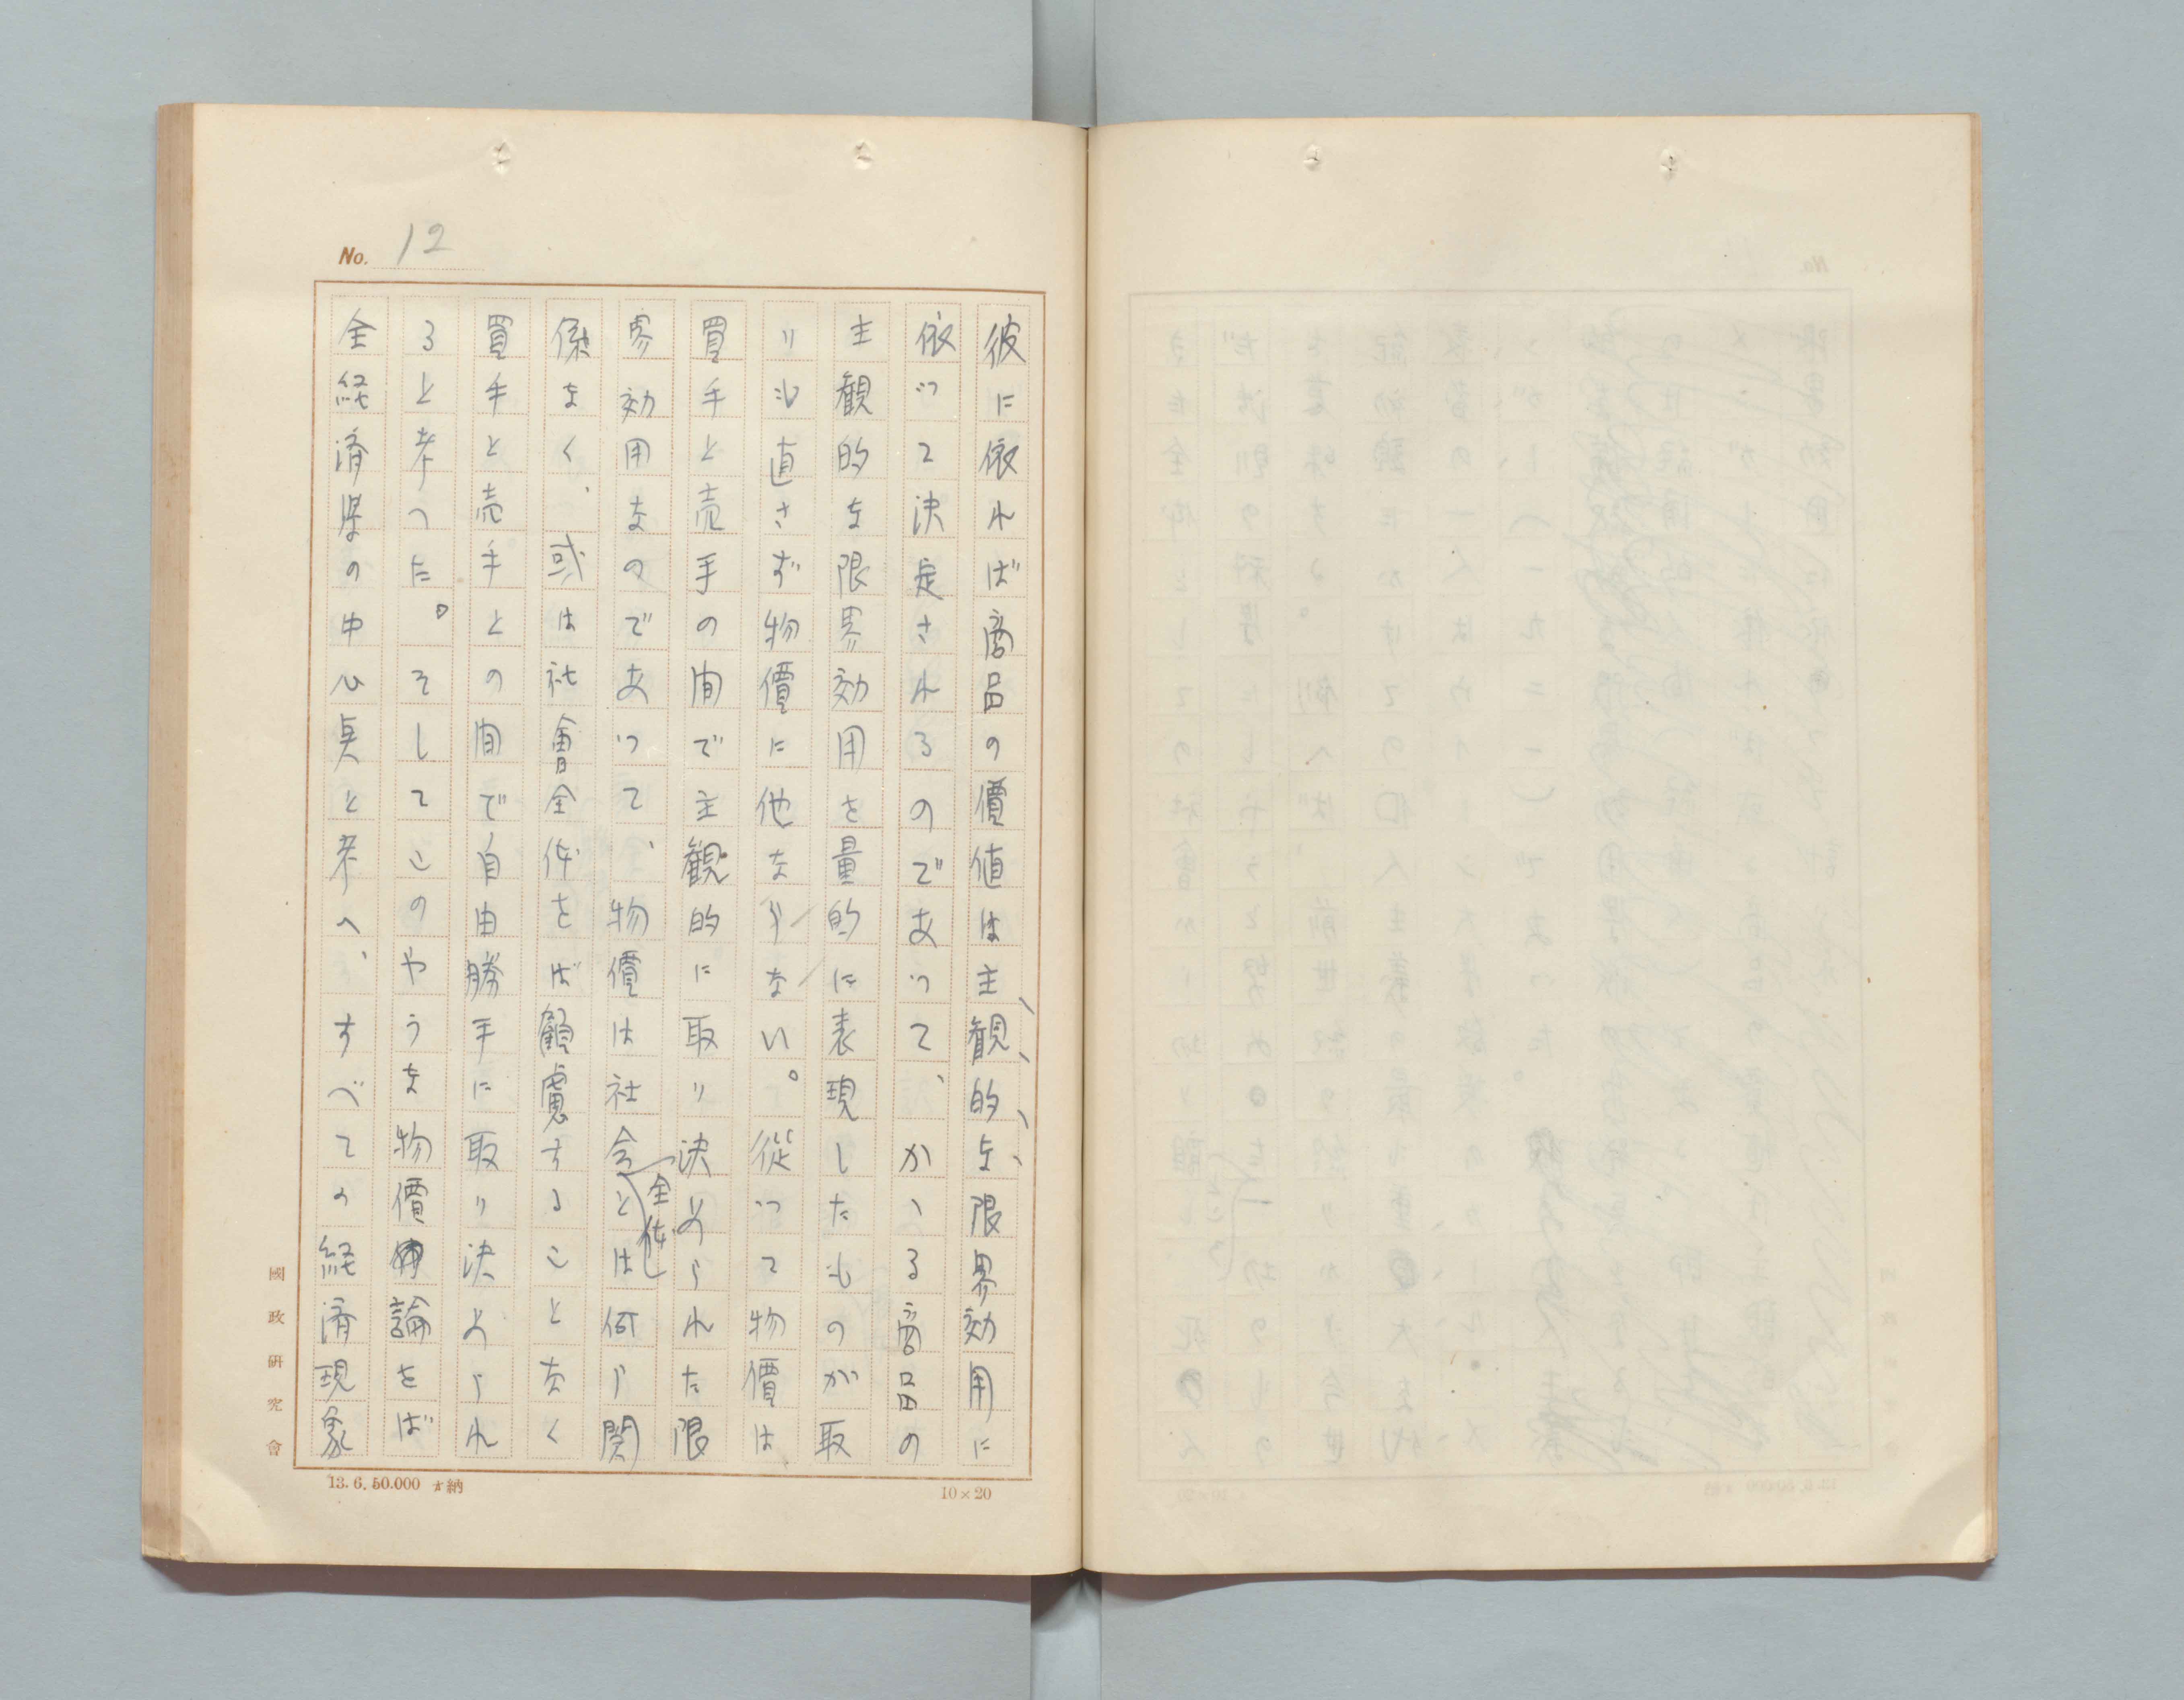 No. 12
彼に依れば商品の價値は主観的な限界効用に
依つて決定されるのであつて、かゝる商品の
主観的な限界効用を量的に表現したものが取
りも直さず物價に他ならない。從つて物價は
買手と売手の間で主観的に取り決められた限
界効用なのであつて、物價は社会全体とは何ら関
係なく、或は社會全体をば顧慮することなく
買手と売手との間で自由勝手に取り決められ
ると考つた。そしてこのやうな物價論をば
全経済学の中心点と考へ、すべての経済現象
國政研究會
13.6.50.000 納
10×20